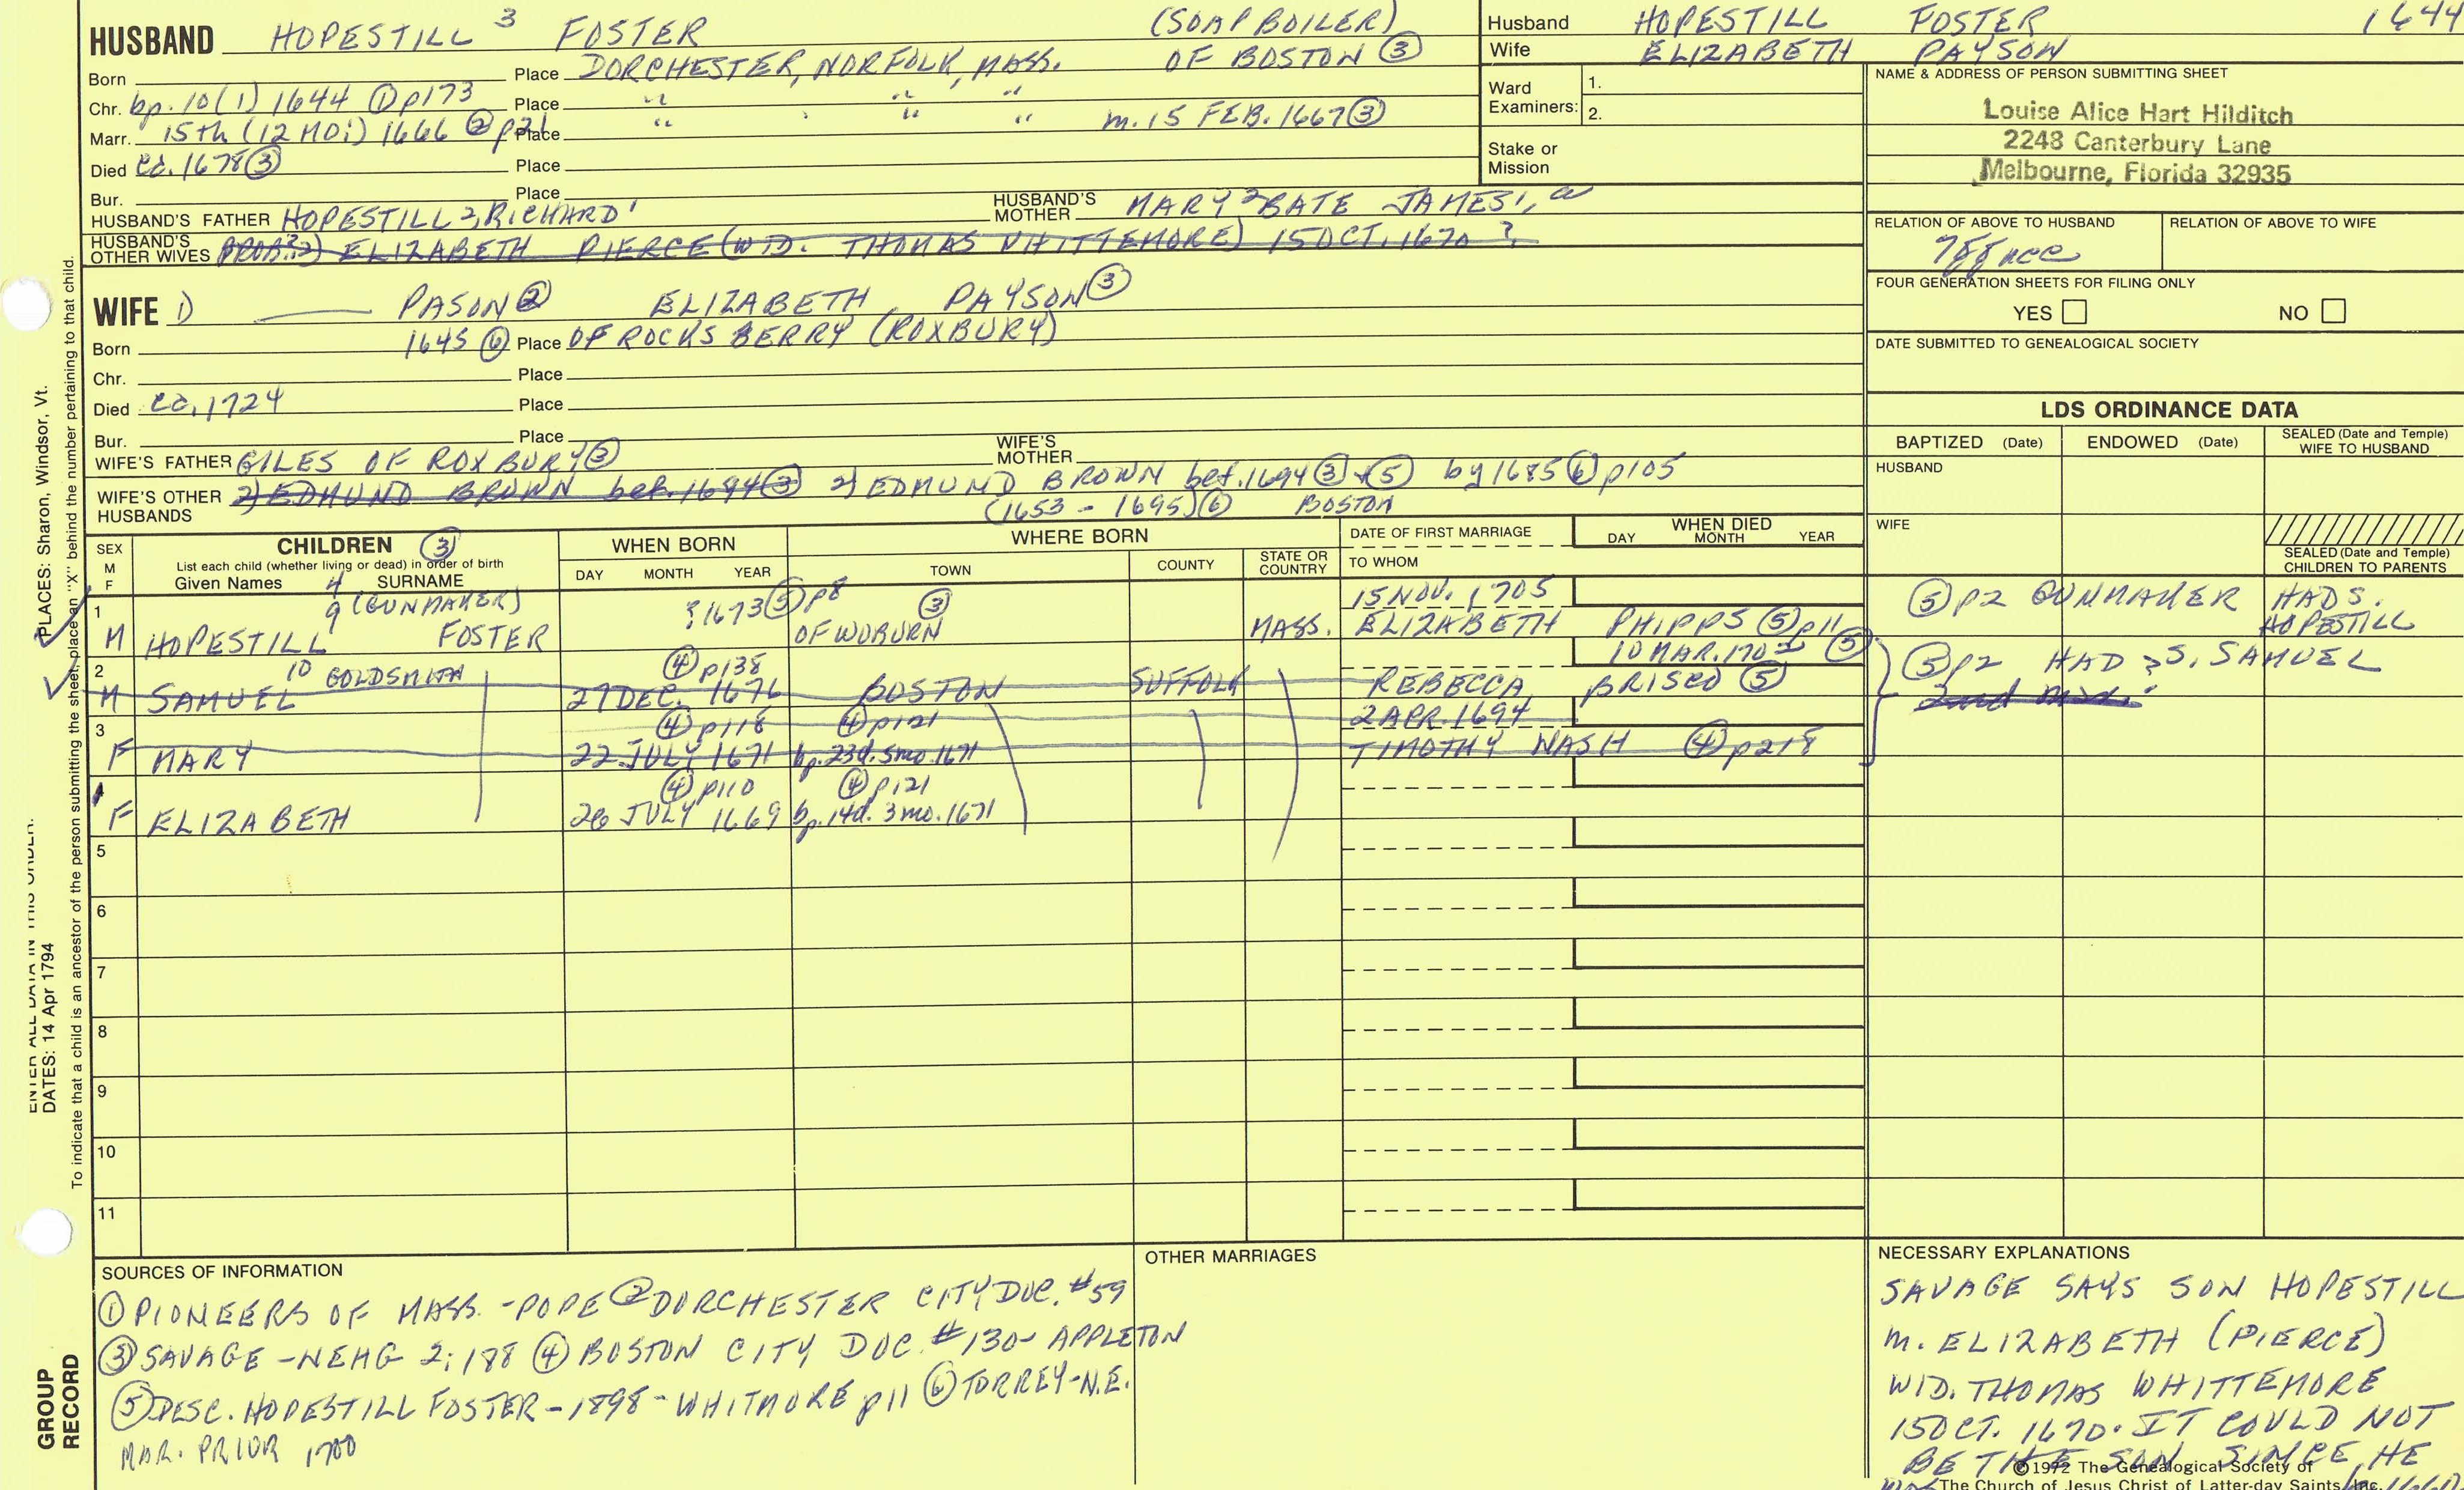 HUSBAND HOPESTILL 3 FOSTER (SOAP BOILER)
Born Place DORCHESTER, NORFOLK, MASS. OF BOSTON ③
Chr. bp. 10(1) 1644 ① p173 Place " " "
Marr. 15th (12 MO:) 1666 ② p21 Place " " " m. 15 FEB. 1667 ③
Died ca. 1678 ③ Place
Bur. Place
HUSBAND'S FATHER HOPESTILL 2, RICHARD 1 HUSBAND'S MOTHER MARY 2 BATE JAMES 1,
HUSBAND'S OTHER WIVES PROB. ?2) ELIZABETH PIERCE (WD. THOMAS WHITTEMORE) 15 OCT. 1670 ?
WIFE 1) PASON ② ELIZABETH PAYSON ③
Born 1645 ⑥ Place OF ROCKS BERRY (ROXBURY)
Chr. Place
Died ca. 1724 Place
Bur. Place
WIFE'S FATHER GILES OF ROXBURY ③ WIFE'S MOTHER
WIFE'S OTHER HUSBANDS 2) EDMUND BROWN bef. 1694 ③ 2) EDMUND BROWN bef. 1694 ③ + ⑤ by 1685 ⑥ p105
(1653 - 1695) ⑥ BOSTON
Husband HOPESTILL FOSTER 1644
Wife ELIZABETH PAYSON
Ward Examiners: 1.
2.
Stake or Mission
NAME & ADDRESS OF PERSON SUBMITTING SHEET
Louise Alice Hart Hilditch
2248 Canterbury Lane
Melbourne, Florida 32935
RELATION OF ABOVE TO HUSBAND RELATION OF ABOVE TO WIFE
FOUR GENERATION SHEETS FOR FILING ONLY
YES NO
DATE SUBMITTED TO GENEALOGICAL SOCIETY
LDS ORDINANCE DATA
BAPTIZED (Date) ENDOWED (Date) SEALED (Date and Temple) WIFE TO HUSBAND
HUSBAND
WIFE
SEALED (Date and Temple) CHILDREN TO PARENTS
SEX M F CHILDREN ③ WHEN BORN WHERE BORN DATE OF FIRST MARRIAGE WHEN DIED
List each child (whether living or dead) in order of birth
Given Names 4 SURNAME DAY MONTH YEAR TOWN COUNTY STATE OR COUNTRY TO WHOM DAY MONTH YEAR
1 9 (GUNMAKER) ?1673 ⑤ p8 ③ 15 NOV. 1705
M HOPESTILL FOSTER OF WOBURN MASS. ELIZABETH PHIPPS ⑤ p11 ⑤ p2 GUNMAKER HAD S. HOPESTILL
2 10 GOLDSMITH ④ p138 10 MAR. 170 ⑤
M SAMUEL 27 DEC. 1676 BOSTON SUFFOLK REBECCA BRISCO ⑤ ⑤ p2 HAD ?S. SAMUEL
3 ④ p118 ④ p121 2 APR. 1694
F MARY 22 JULY 1671 bp. 23d. 5mo. 1671 TIMOTHY NASH ④ p218
4 ④ p110 ④ p121
F ELIZABETH 26 JULY 1669 bp. 14d. 3mo. 1671
5
6
7
8
9
10
11
SOURCES OF INFORMATION
① PIONEERS OF MASS. - POPE ② DORCHESTER CITY DOC. #59
③ SAVAGE - NEHG 2:188 ④ BOSTON CITY DOC. #130 - APPLETON
⑤ DESC. HOPESTILL FOSTER - 1898 - WHITMORE p11 ⑥ TORREY - N.E.
MAR. PRIOR 1700
OTHER MARRIAGES
NECESSARY EXPLANATIONS
SAVAGE SAYS SON HOPESTILL
M. ELIZABETH (PIERCE)
WID. THOMAS WHITTEMORE
15 OCT. 1670. IT COULD NOT
BE THE SON SINCE HE
©1972 The Genealogical Society of
The Church of Jesus Christ of Latter-day Saints, Inc.
PLACES: Sharon, Windsor, Vt.
ENTER ALL DATA IN THIS ORDER:
DATES: 14 Apr 1794
To indicate that a child is an ancestor of the person submitting the sheet, place an "X" behind the number pertaining to that child.
GROUP RECORD